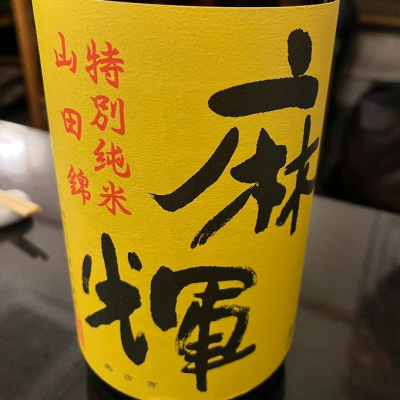 麻輝
特別純米
山田錦